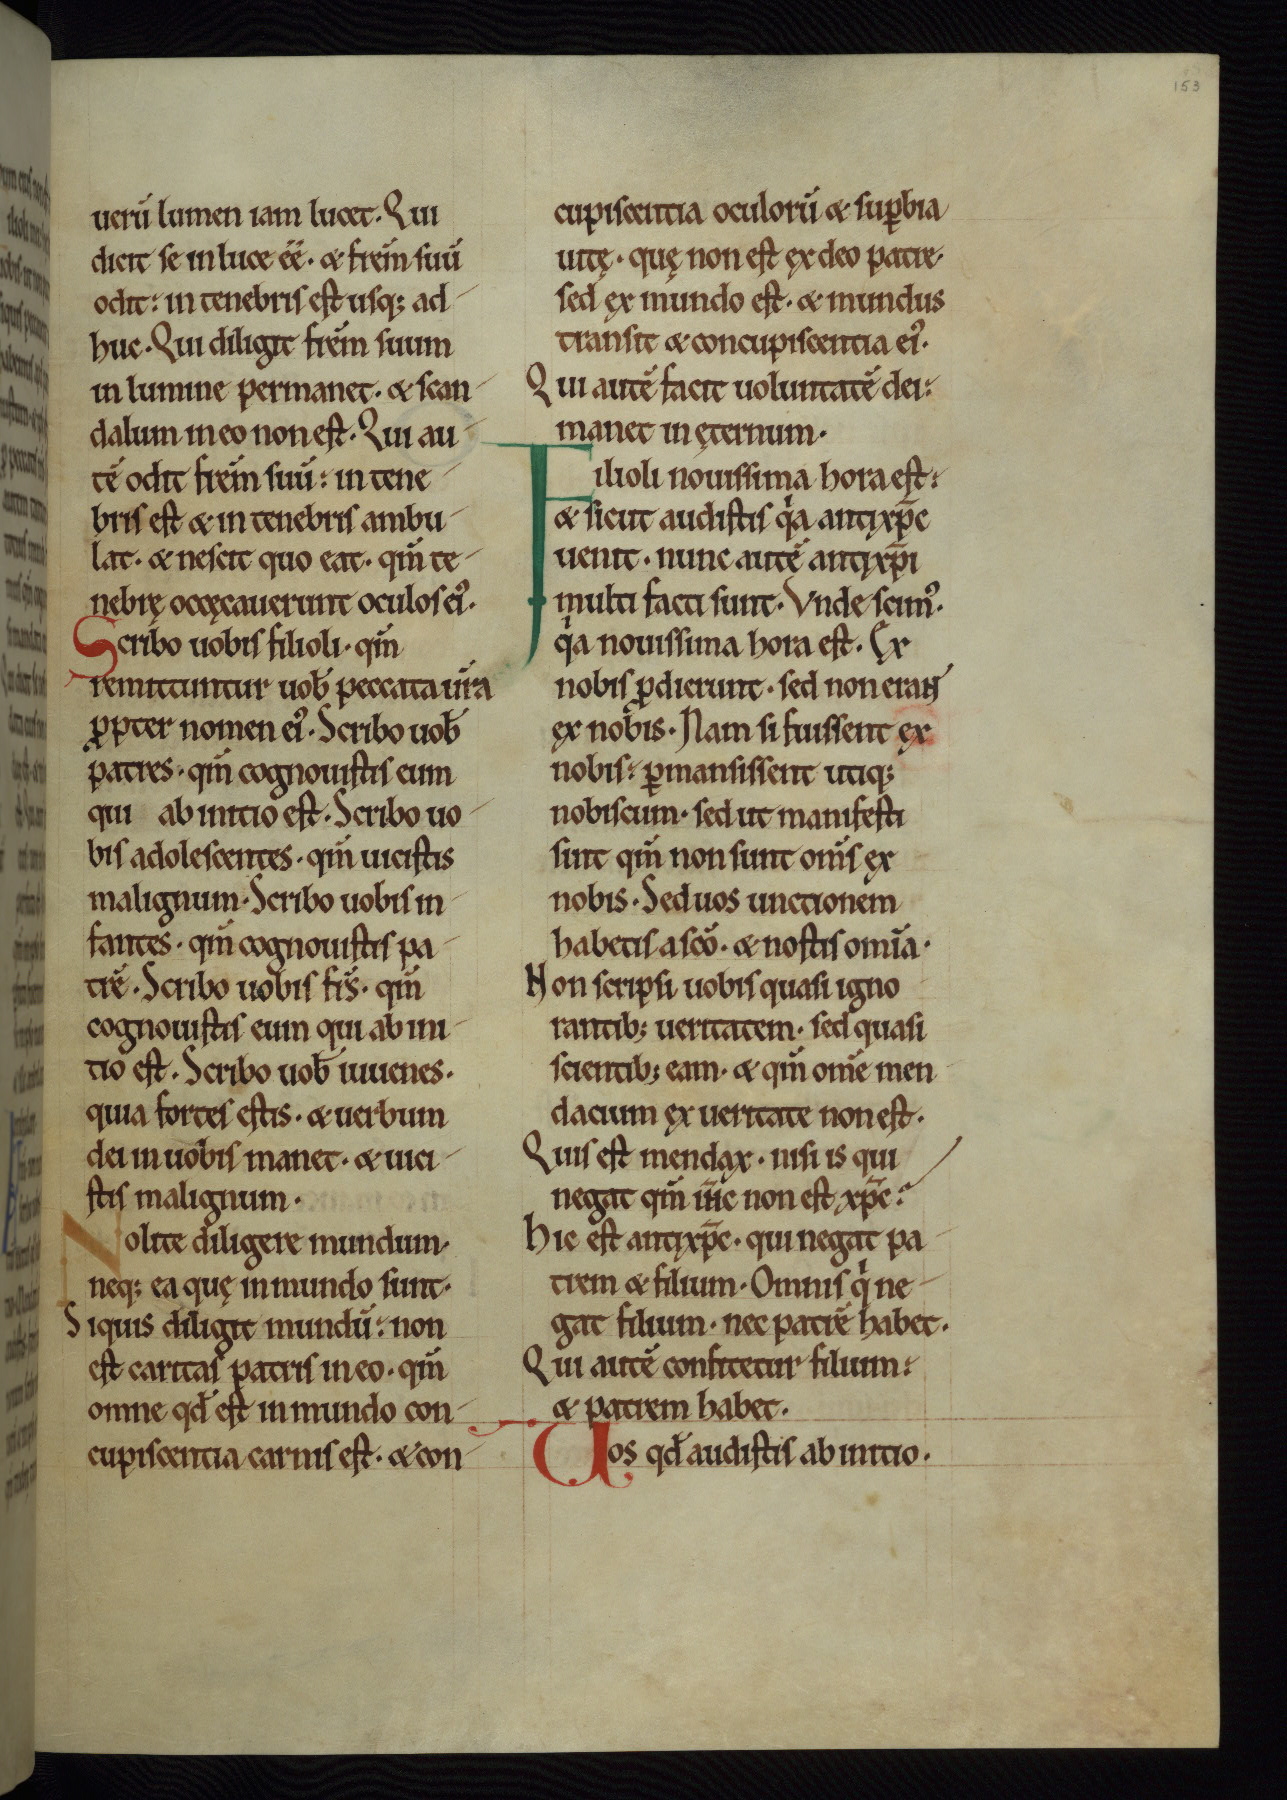 153
uerū lumen iam lucet. Qui
dicit se in luce ēē. & frēm suū
odit: in tenebris est usq; ad
huc. Qui diligit frēm suum
in lumine permanet. & scan
dalum in eo non est. Qui au
tē odit frēm suū: in tene
bris est & in tenebris ambu
lat. & nescit quo eat. qm̄ te
nebrę occęcauerunt oculos ei᾿.
Scribo uobis filioli. qm̄
remittuntur uob̄ peccata ur̄a
ꝓpter nomen ei᾿. Scribo uob̄
patres. qm̄ cognouistis eum
qui ab initio est. Scribo uo
bis adolescentes. qm̄ uicistis
malignum. Scribo uobis in
fantes. qm̄ cognouistis pa
trē. Scribo uobis frs̄. qm̄
cognouistis eum qui ab ini
tio est. Scribo uob̄ iuuenes.
quia fortes estis. & uerbum
dei in uobis manet. & uici
stis malignum.
Nolite diligere mundum.
neq; ea quę in mundo sunt.
Siquis diligit mundū: non
est caritas patris in eo. qm̄
omne qd̄ est in mundo con
cupiscentia carnis est. & con
cupiscentia oculorū & suꝑbia
uitę. quę non est ex deo patre.
sed ex mundo est. & mundus
transit & concupiscentia ei᾿.
Qui autē facit uoluntatē dei:
manet in ęternum.
Filioli nouissima hora est:
& sicut audistis qͥa antixp̄c
uenit. nunc autē antixp̄i
multi facti sunt. Vnde scim᾿.
qͥa nouissima hora est. Ex
nobis ꝓdierunt. sed non erant
ex nobis. Nam si fuissent ex
nobis: ꝑmansissent utiq;
nobiscum. sed ut manifesti
sint qm̄ non sunt om̄s ex
nobis. Sed uos unctionem
habetis a scō. & nostis om̄ia.
Non scripsi uobis quasi igno
rantib; ueritatem. sed quasi
scientib; eam. & qm̄ om̄e men
dacium ex ueritate non est.
Quis est mendax. nisi is qui
negat qm̄ ih̄c non est xp̄c?
hic est antixp̄c. qui negat pa
trem & filium. Omnis qͥ ne
gat filium. nec patrē habet.
Qui autē confitetur filium:
& patrem habet.
Uos qd̄ audistis ab initio.